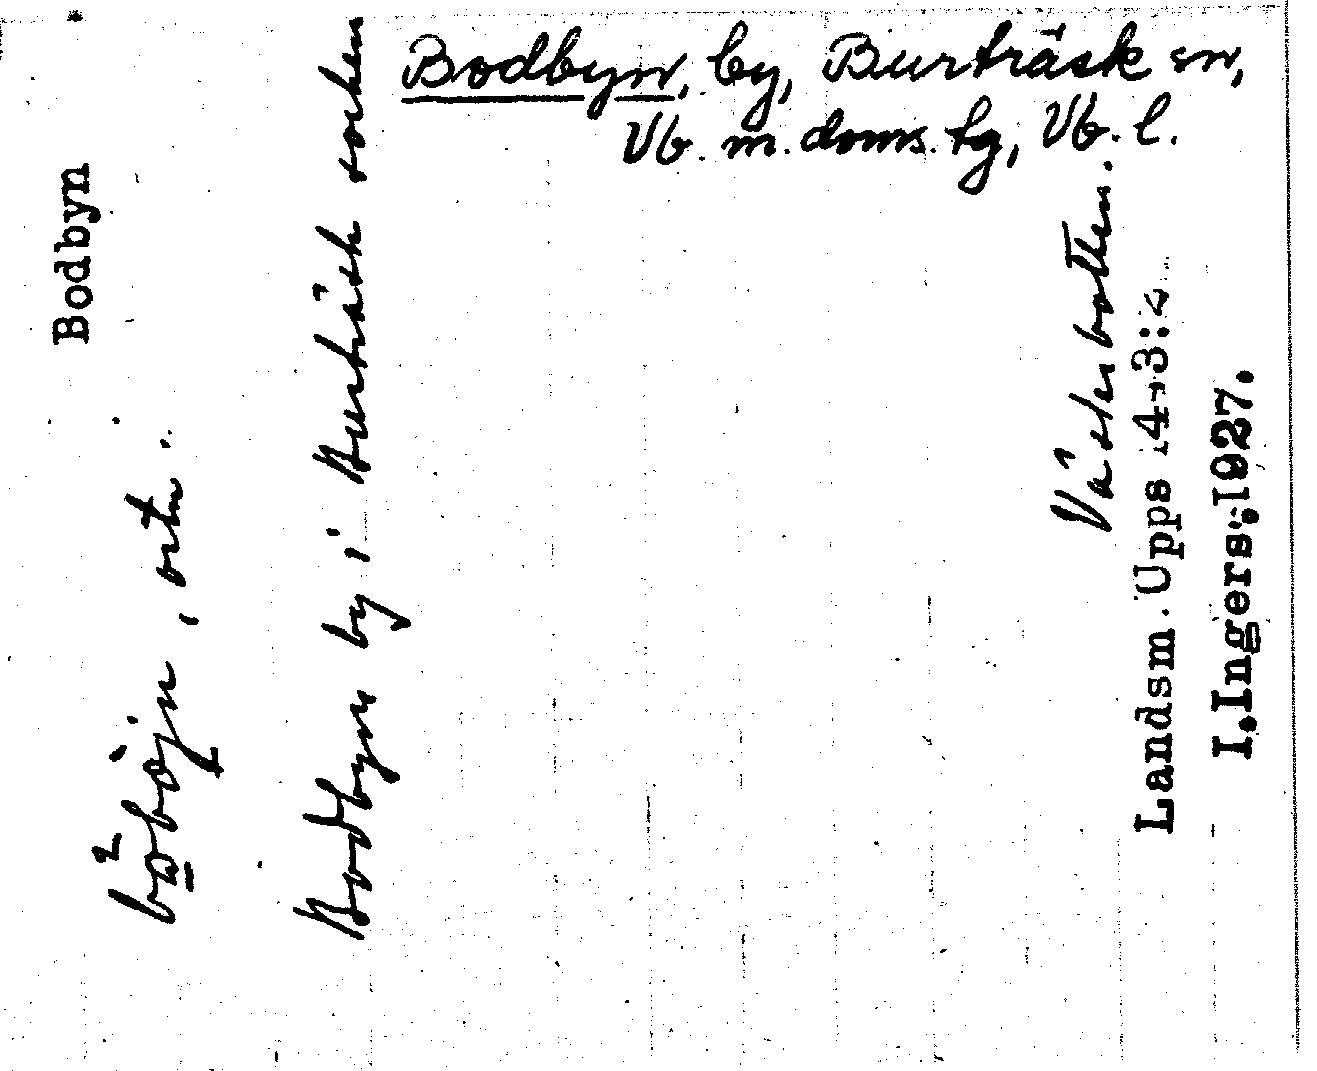 Bodbyn, by, Burträsk sn,
Vb. m. doms. fg, Vb. l.
Bodbyn
, ortn.
Bodbyn by i Burträsk socken
Västerbotten.
Landsm. Upps
I. Ingers, 1927.